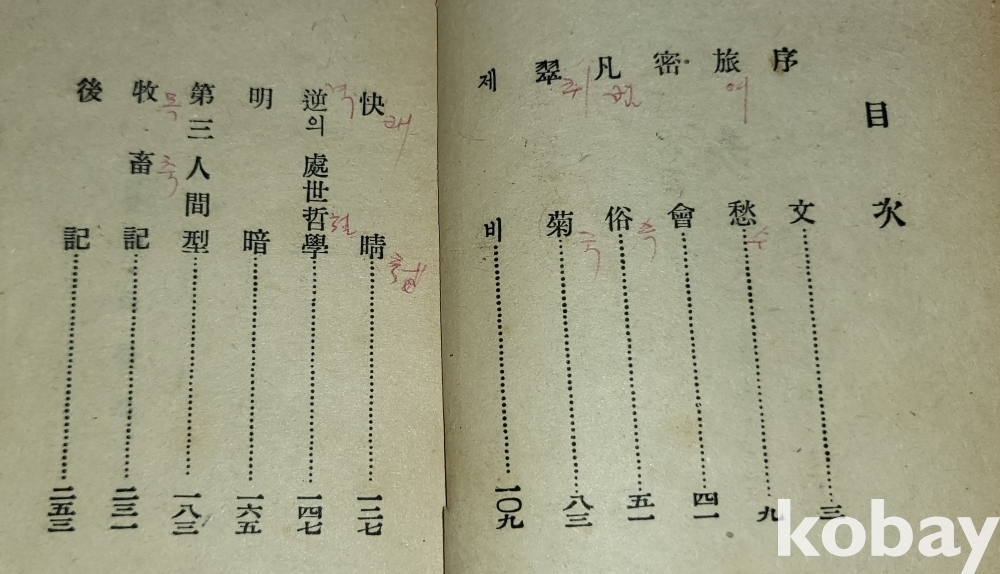 目次
序文 三
旅愁 九
密會 四一
凡俗 五一
翠菊 八三
제비 一〇九
快晴 一二七
逆의 處世哲學 一四七
明暗 一六五
第三人間型 一八三
牧畜記 二三一
後記 二五三
여
수
속
취
국
쾌
역
철
목
축
kobay